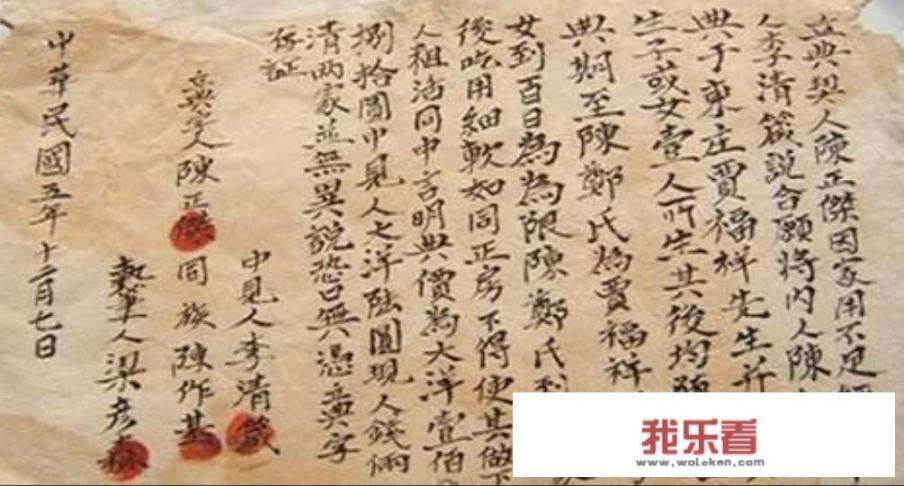 立典契人陳正傑因家用不足經
人李清箴說合願將內人陳
典于東庄賈福祥先生並
生子或女壹人所生其後均
典期至陳鄭氏為賈福祥
女到百日為為限陳鄭氏到
後吃用細軟如同正房不得使其做下
人粗活同中言明典價為大洋壹佰
捌拾圓中見人之洋陆圓現人錢両
清两家並無異說恐口無憑立典字
存証
中見人李清箴
立典字人陳正傑 同族陳作基
執筆人梁彦森
中華民國五年十二月七日
我乐看
www.woleken.com